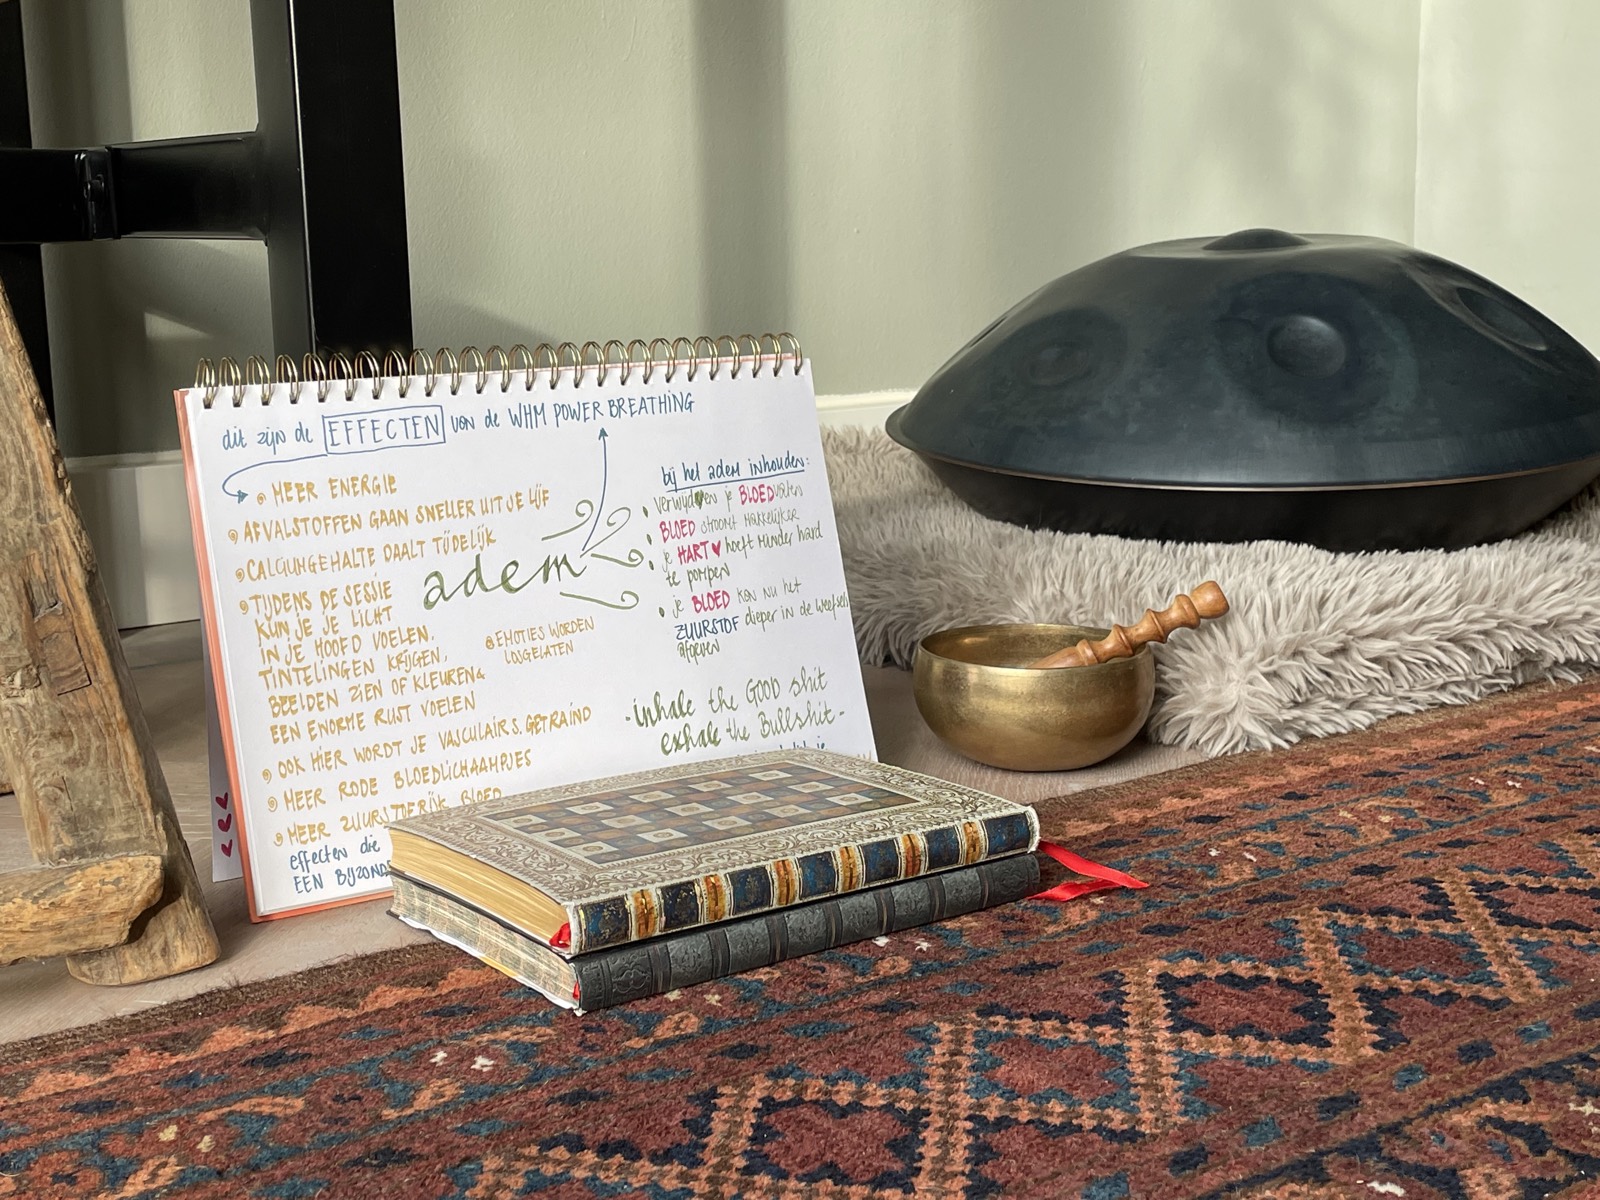 dit zijn de EFFECTEN van de WHM POWER BREATHING
MEER ENERGIE
AFVALSTOFFEN GAAN SNELLER UIT JE LIJF
CALCIUMGEHALTE DAALT TIJDELIJK
TIJDENS DE SESSIE
KUN JE JE LICHT
IN JE HOOFD VOELEN,
TINTELINGEN KRIJGEN,
BEELDEN ZIEN OF KLEUREN &
EEN ENORME RUST VOELEN
OOK HIER WORDT JE VASCULAIR S. GETRAIND
MEER RODE BLOEDLICHAAMPJES
MEER ZUURSTOFRIJK BLOED
effecten die
EEN BIJZOND
adem
EMOTIES WORDEN
LOSGELATEN
bij het adem inhouden:
verwijden je BLOEDvaten
BLOED stroomt makkelijker
je HART ♥ hoeft minder hard
te pompen
je BLOED kan nu het
ZUURSTOF dieper in de weefsels
afgeven
- inhale the GOOD shit
exhale the Bullshit -